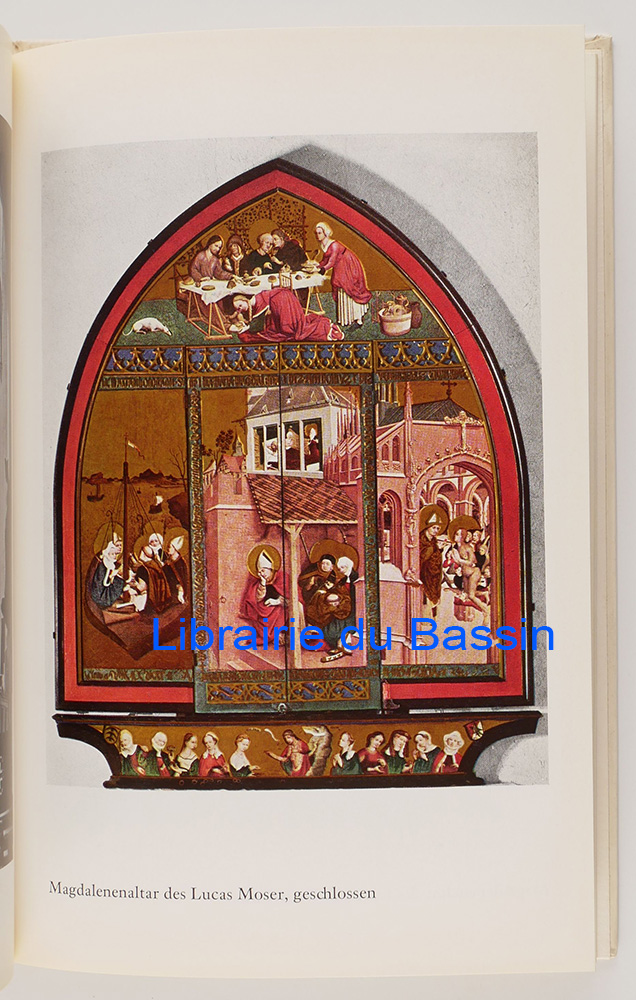 Librairie du Bassin
Magdalenenaltar des Lucas Moser, geschlossen